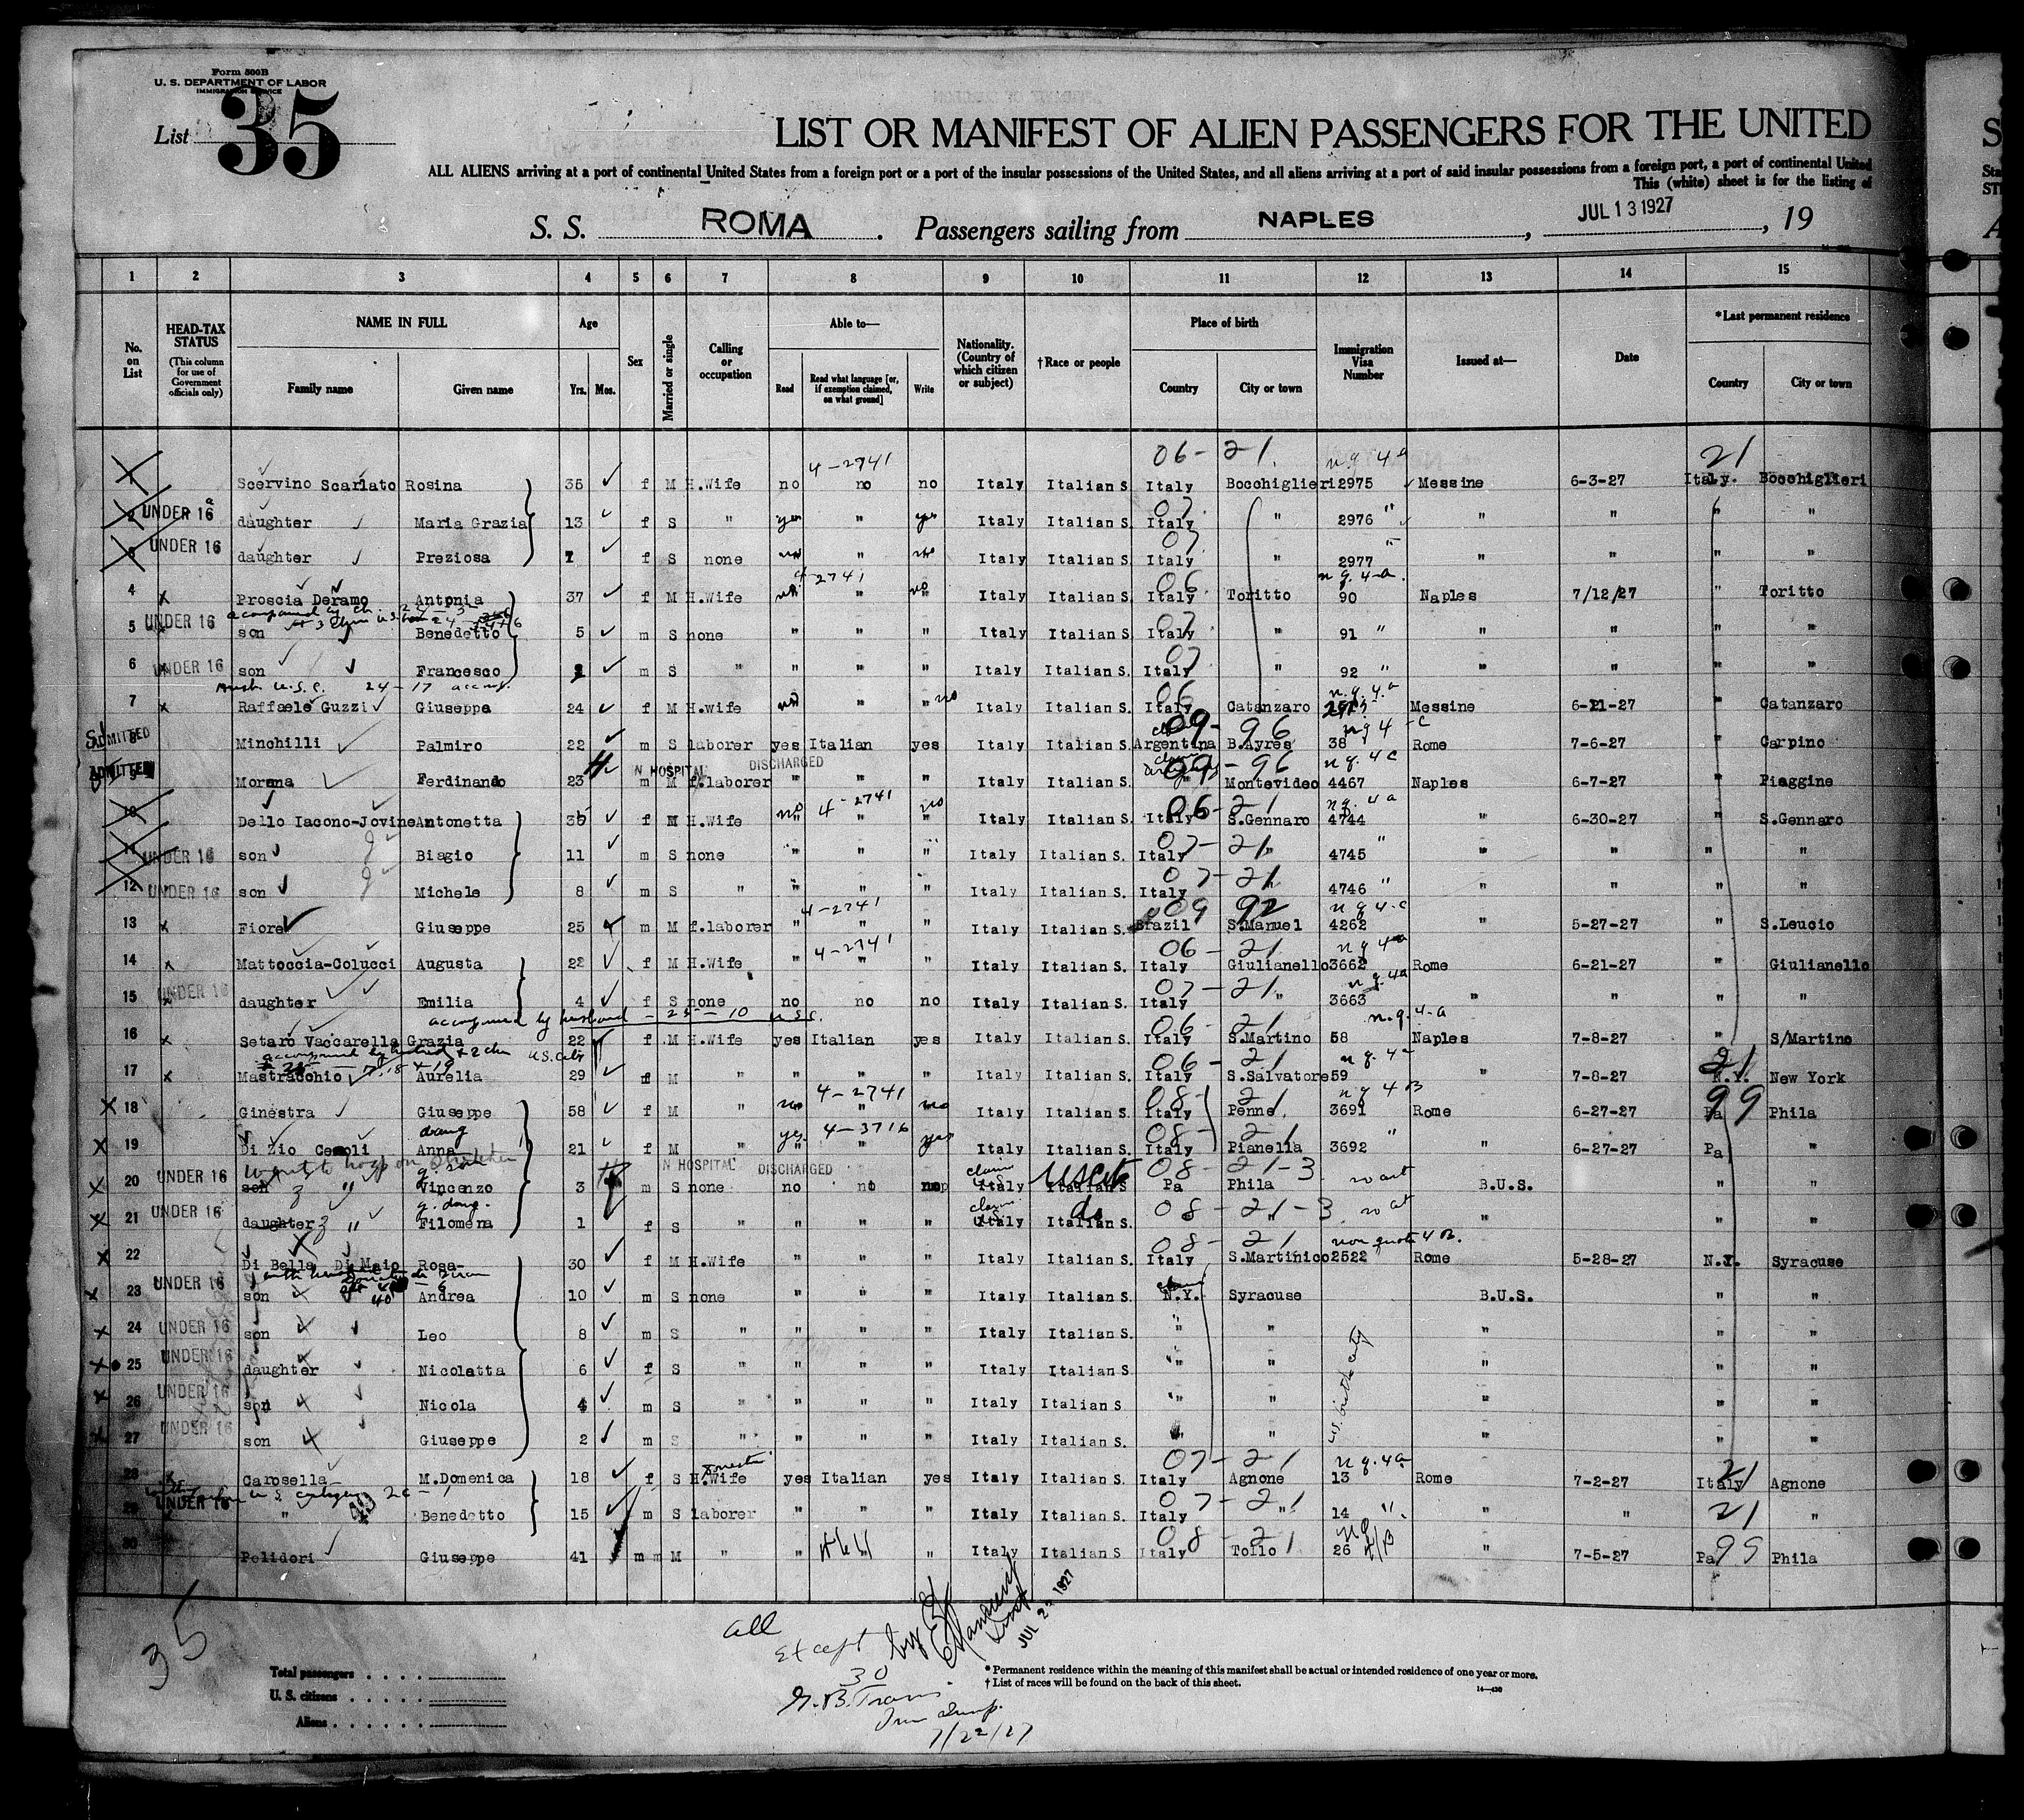 Form 500B
U. S. DEPARTMENT OF LABOR
IMMIGRATION SERVICE
List 35
LIST OR MANIFEST OF ALIEN PASSENGERS FOR THE UNITED
ALL ALIENS arriving at a port of continental United States from a foreign port or a port of the insular possessions of the United States, and all aliens arriving at a port of said insular possessions from a foreign port, a port of continental United
This (white) sheet is for the listing of
S. S. ROMA. Passengers sailing from NAPLES, JUL 13 1927, 19
1 2 3 4 5 6 7 8 9 10 11 12 13 14 15
No. on List
HEAD-TAX STATUS (This column for use of Government officials only)
NAME IN FULL
Family name Given name
Age
Yrs. Mos.
Sex
Married or single
Calling or occupation
Able to—
Read
Read what language [or, if exemption claimed, on what ground]
Write
Nationality. (Country of which citizen or subject)
†Race or people
Place of birth
Country City or town
Immigration Visa Number
Issued at—
Date
*Last permanent residence
Country City or town
06-21. n.q 4a 21
4-2741
Scervino Scarlato Rosina 35 f M H.Wife no no no Italy Italian S. Italy Bocchiglieri 2975 Messine 6-3-27 Italy. Bocchiglieri
2 UNDER 16 daughter Maria Grazia 13 f S " yes " yes Italy Italian S. 07 Italy " 2976 " " " " "
3 UNDER 16 daughter Preziosa f S none no " no Italy Italian S. 07 Italy 2977 " " " "
4-2741 n q. 4-a.
4 x Proscia Deramo Antonia 37 f M H.Wife no " no Italy Italian S. 06 Italy Toritto 90 Naples 7/12/27 " Toritto
5 UNDER 16 son Benedetto 5 m S none " " " Italy Italian S. 07 Italy " 91 " " " " "
6 UNDER 16 son Francesco m S " " " " Italy Italian S. 07 Italy " 92 " " " " "
24-17
7 x Raffaele Guzzi Giuseppa 24 f M H.wife no " " no Italy Italian S. 06 Italy Catanzaro n.q. 4.a Messine 6-21-27 " Catanzaro
ADMITTED 8 Minchilli Palmiro 22 m S laborer yes Italian yes Italy Italian S. 09-96 Argentina B.Ayres n q 4-c 38 Rome 7-6-27 " Carpino
N HOSPITAL DISCHARGED
ADMITTED 9 Morena Ferdinando 23 m M f.laborer " " " Italy Italian S. 09-96 Montevideo n q. 4c 4467 Naples 6-7-27 " Piaggine
10 Dello Iacono-Jovine Antonetta 35 f M H.Wife no 4-2741 no Italy Italian S. 06-21 Italy S.Gennaro n q. 4a 4744 " 6-30-27 " S.Gennaro
11 UNDER 16 son Biagio 11 m S none " " " Italy Italian S. 07-21 Italy " 4745 " " " " "
12 UNDER 16 son Michele 8 m S " " " " Italy Italian S. 07-21 Italy " 4746 " " " " "
4-2741
13 x Fiore Giuseppe 25 m M f.laborer " " " Italy Italian S. 09 92 Brazil S.Manuel n q 4-c 4262 " 5-27-27 " S.Leucio
4-2741
14 x Mattoccia-Colucci Augusta 22 f M H.Wife " " " Italy Italian S. 06-21 Italy Giulianello 3662 Rome 6-21-27 " Giulianello
15 UNDER 16 daughter Emilia 4 f S none no no no Italy Italian S. 07-21 Italy " 3663 " " " "
by husband - 25-10 U.S.C.
16 x Setaro Vaccarella Grazia 22 f M H.Wife yes Italian yes Italy Italian S. 06-21 Italy S.Martino n.q. 4-a 58 Naples 7-8-27 " S/Martino
17 x Mastracchio Aurelia 29 f M " " " " Italy Italian S. 06-21 Italy S.Salvatore 59 " 7-8-27 N.Y. New York
x 18 Ginestra Giuseppe 58 f M " no 4-2741 no Italy Italian S. 08-21 Italy Penne, n q 4 B 3691 Rome 6-27-27 Pa 99 Phila
x 19 Di Zio Cesoli Anna daug 21 f M " yes 4-3716 yes Italy Italian S. 08-21 Italy Pianella 3692 " " 6-27-27 Pa "
N HOSPITAL DISCHARGED
x 20 UNDER 16 son Vincenzo g. son 3 m S none no no no claim U.S. Italy Italian S 08-21-3 Pa Phila B.U.S. " "
x 21 UNDER 16 daughter Filomena g. daug. 1 f S " " " " claim U.S. Italy Italian S. do 08-21-3 " " " "
x 22 Di Bella Di Maio Rosa- 30 f M H.Wife " " " Italy Italian S. 08-21 Italy S.Martinico non quota 4 B. 2522 Rome 5-28-27 N.Y. Syracuse
x 23 UNDER 16 son Andrea 10 m S none " " " Italy Italian S. N.Y. Syracuse B.U.S. " "
x 24 UNDER 16 son Leo 8 m S " " " " Italy Italian S. " " " " "
x 25 UNDER 16 daughter Nicoletta 6 f S " " " " Italy Italian S. " " " " "
x 26 UNDER 16 son Nicola 4 m S " " " " Italy Italian S " " " " "
27 UNDER 16 son Giuseppe 2 m S " " " " Italy Italian S. " " " " "
U.S. birth cert
28 x Carosella M.Domenica 18 f S H.Wife yes Italian yes Italy Italian S. 07-21 Italy Agnone n q. 4a 13 Rome 7-2-27 Italy 21 Agnone
29 UNDER 16 " Benedetto 15 m S laborer " " " Italy Italian S. 07-21 Italy " 14 " " " 21 "
30 Polidori Giuseppe 41 m M " " " " Italy Italian S 08-21 Italy Tollo 26 " 7-5-27 Pa Phila
all
except by
30
JUL 1927
7/22/27
35
Total passengers
U. S. citizens
Aliens
* Permanent residence within the meaning of this manifest shall be actual or intended residence of one year or more.
† List of races will be found on the back of this sheet.
14—430